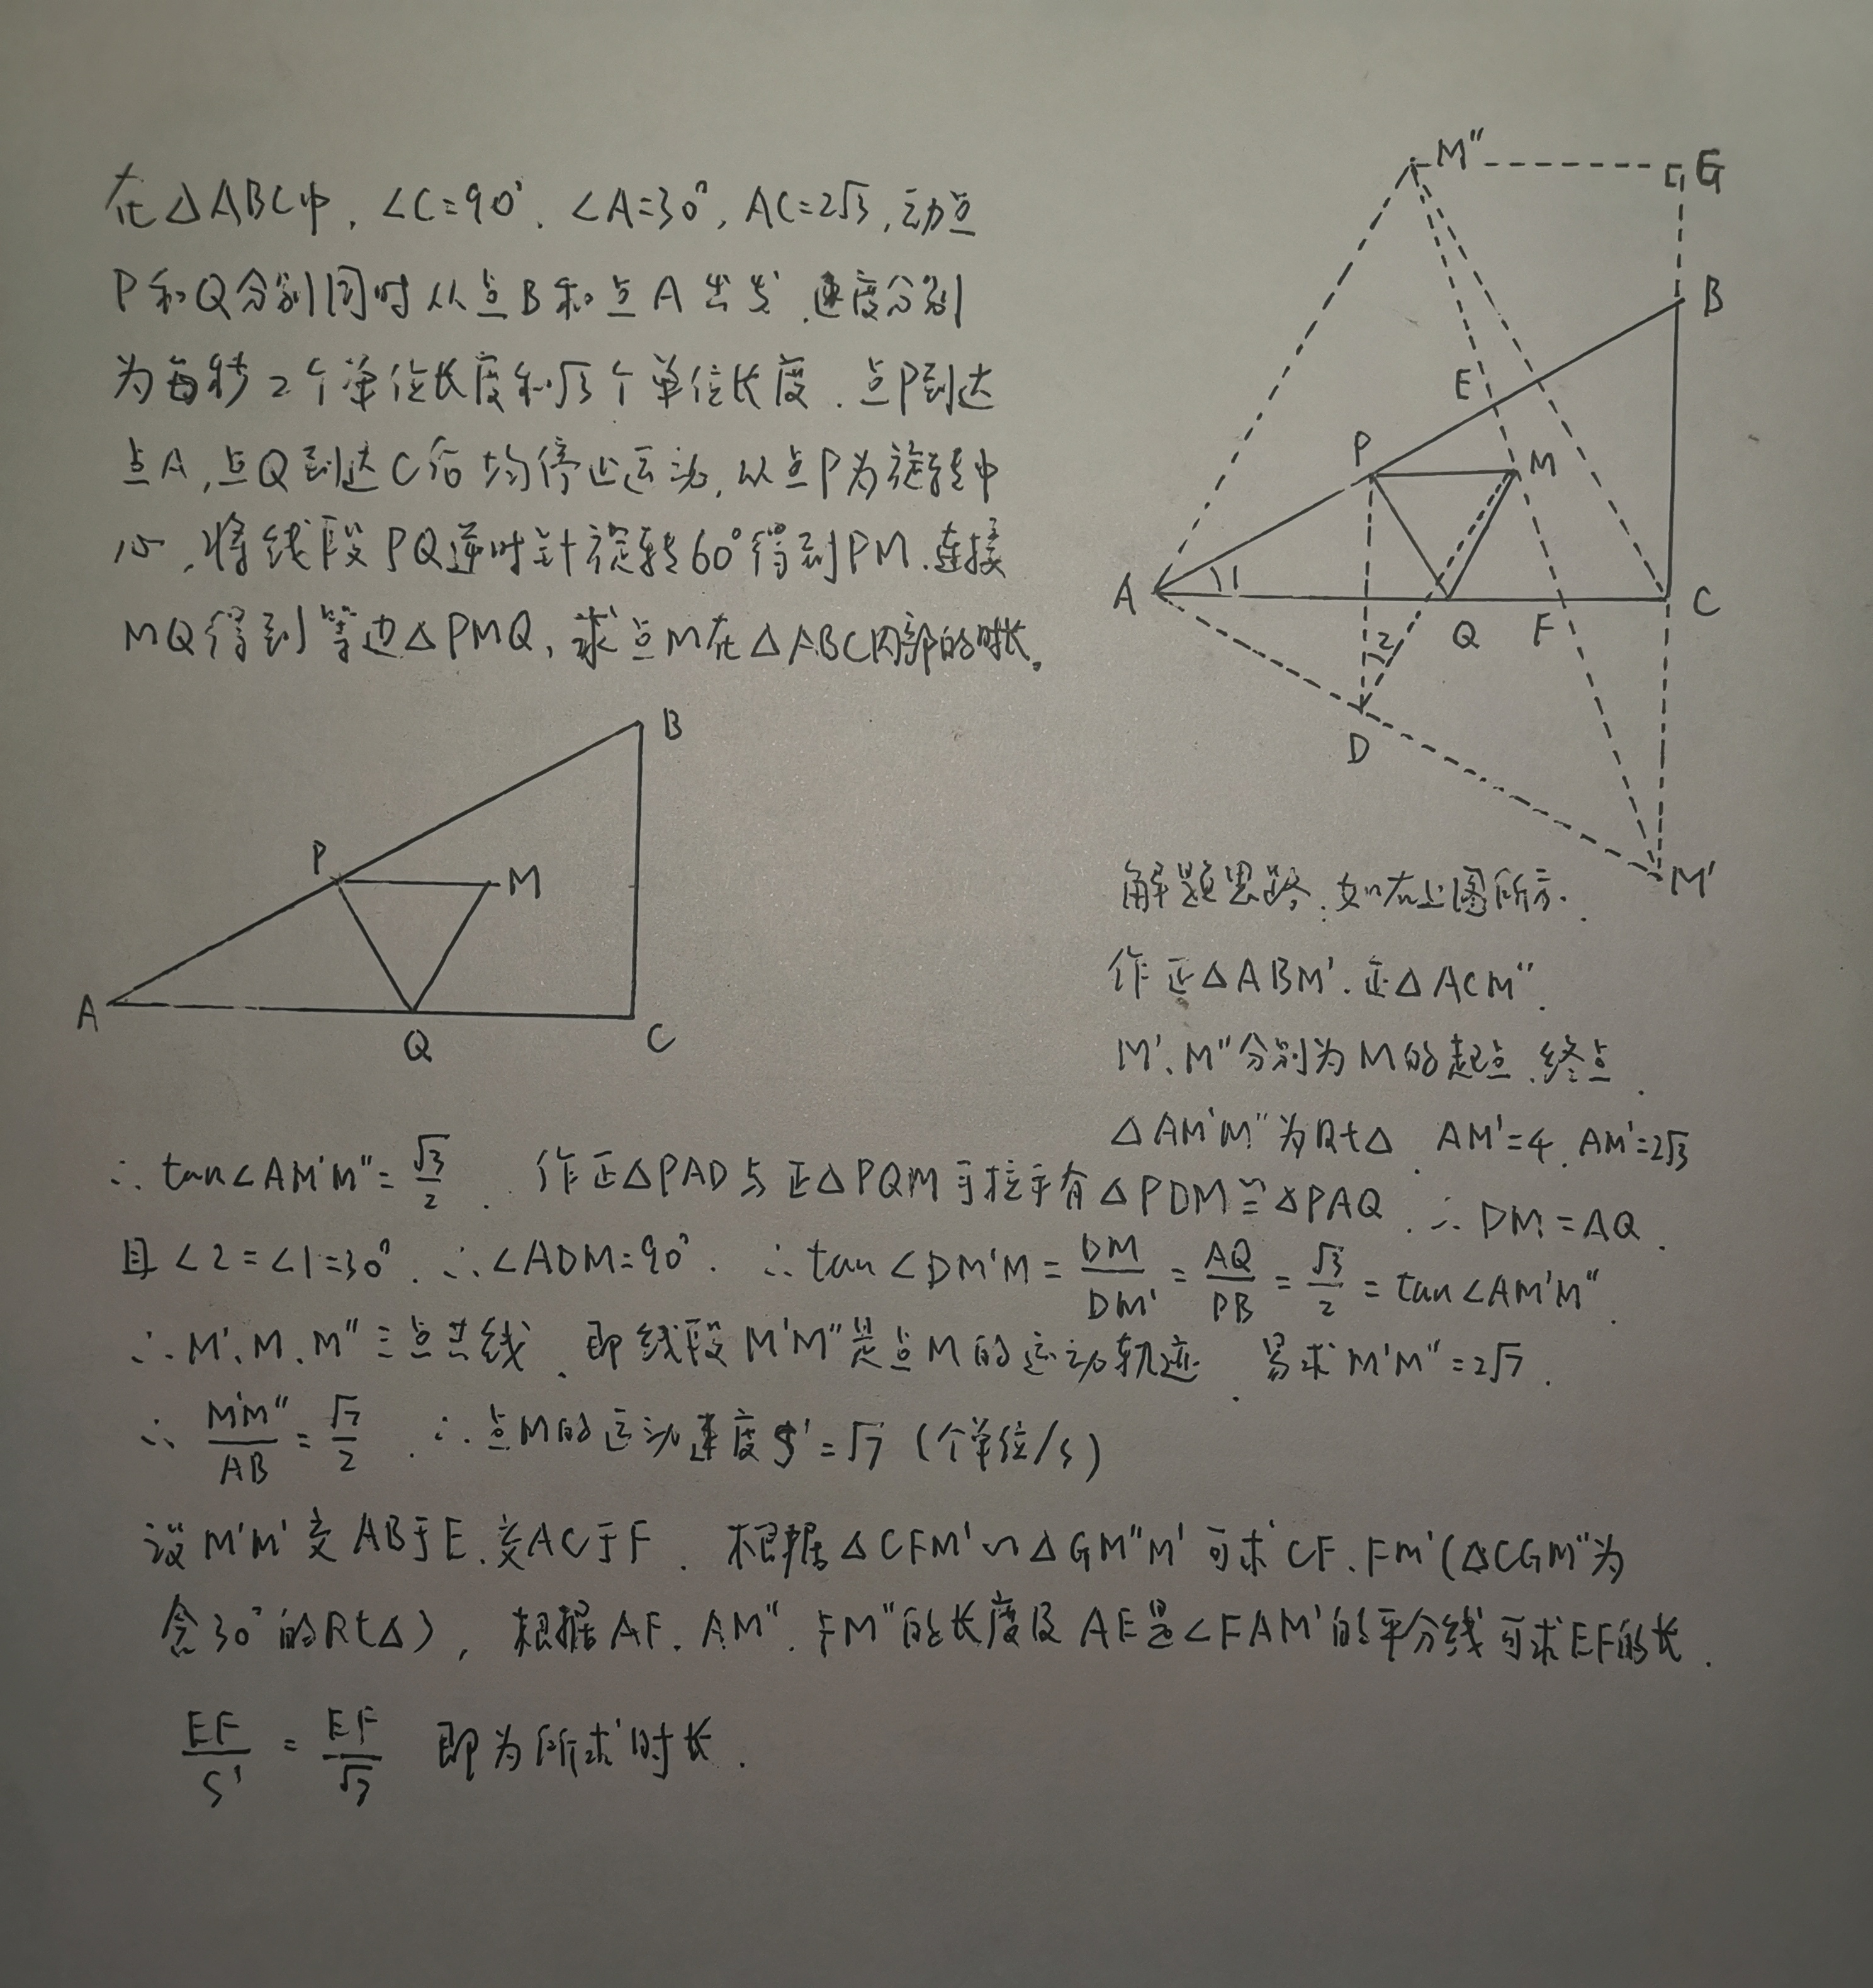 在△ABC中，∠C=90°，∠A=30°，AC=2√3，动点
P和Q分别同时从点B和点A出发，速度分别
为每秒2个单位长度和√3个单位长度，点P到达
点A，点Q到达C后均停止运动，以点P为旋转中
心，将线段PQ逆时针旋转60°得到PM，连接
MQ得到等边△PMQ，求点M在△ABC内部的时长。
M"
G
B
E
P
M
A
1
C
Q
F
2
D
M'
B
P
M
A
Q
C
解题思路，如右上图所示．
作正△ABM'．正△ACM"．
M'、M"分别为M的起点、终点．
△AM'M"为Rt△．AM'=4．AM'=2√3
∴tan∠AM'M"=√3/2．作正△PAD与正△PQM可拉手有△PDM≌△PAQ．∴DM=AQ．
且∠2=∠1=30°．∴∠ADM=90°．∴tan∠DM'M=DM/DM'=AQ/PB=√3/2=tan∠AM'M"．
∴M'、M、M"三点共线．即线段M'M"是点M的运动轨迹．易求M'M"=2√7．
∴M'M"/AB=√7/2．∴点M的运动速度S'=√7（个单位/s）
设M'M'交AB于E．交AC于F．根据△CFM'∽△GM"M'可求CF、FM'（△CGM"为
含30°的Rt△），根据AF、AM"、FM"的长度及AE是∠FAM'的平分线可求EF的长．
EF/S'=EF/√7 即为所求时长．